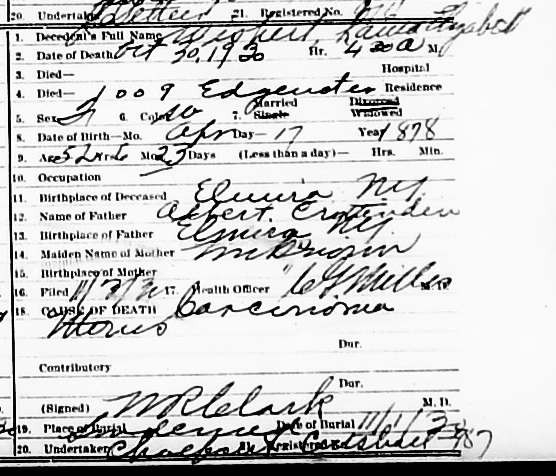 20. Undertaker 21. Registered No.
1. Decedent's Full Name Elizabeth
2. Date of Death Oct 30, 1930 Hr. 4 30 a M.
3. Died— Hospital
4. Died— 1009 Edgewater Residence
5. Sex F 6. Color W 7. Married Single Divorced Widowed
8. Date of Birth—Mo. Apr Day— 17 Year 1878
9. Age 52 Yrs 6 Mo. 23 Days (Less than a day)— Hrs. Min.
10. Occupation
11. Birthplace of Deceased Elmira NY
12. Name of Father Albert Crittenden
13. Birthplace of Father Elmira NY
14. Maiden Name of Mother
15. Birthplace of Mother
16. Filed 11/3/30 17. Health Officer Miller M.D.
18. CAUSE OF DEATH Carcinoma
Uterus
Dur.
Contributory
Dur.
(Signed) W R Clark M. D.
19. Place of Burial Date of Burial 11/1/30
20. Undertaker 21. Registered No. 987